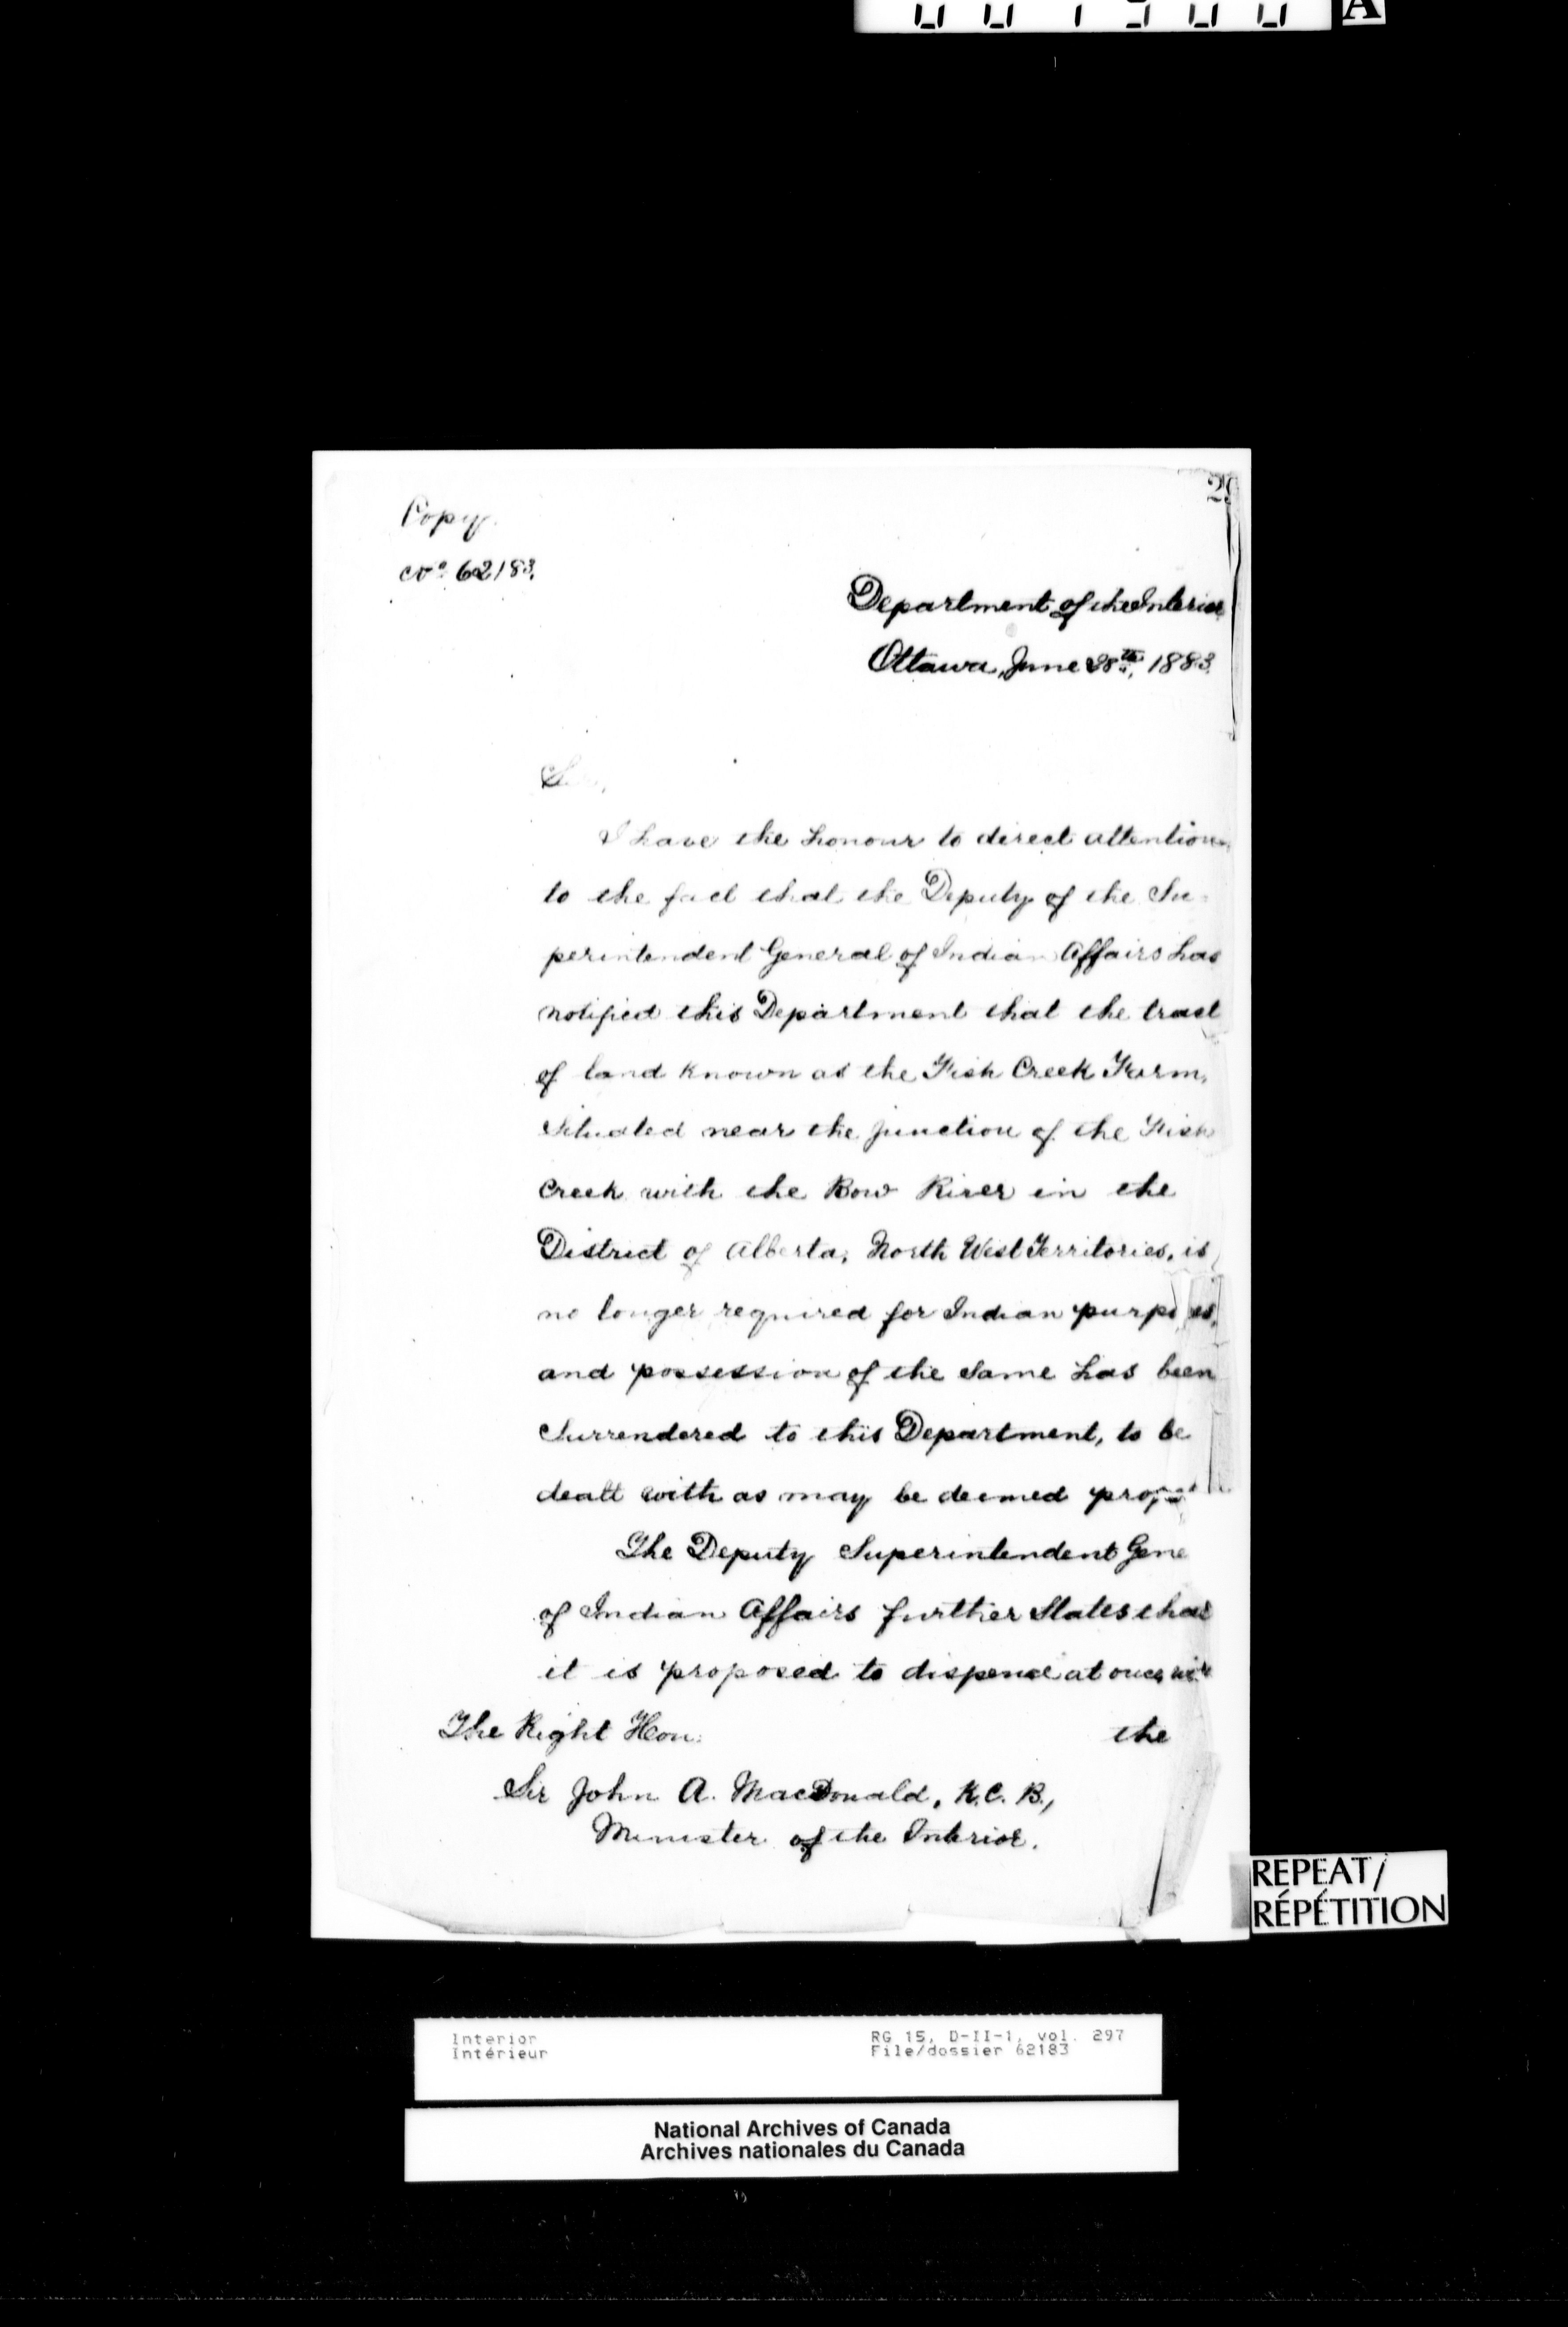 A
Copy.
No. 62183.
Department of the Interior
Ottawa, June 28th, 1883.
Sir,
I have the honour to direct attention
to the fact that the Deputy of the Su-
perintendent General of Indian Affairs has
notified this Department that the tract
of land known as the Fish Creek Farm,
situated near the junction of the Fish
Creek with the Bow River in the
District of Alberta, North West Territories, is
no longer required for Indian purposes,
and possession of the same has been
surrendered to this Department, to be
dealt with as may be deemed proper
The Deputy Superintendent Gene
of Indian Affairs further states that
it is proposed to dispense at once with
The Right Hon: the
Sir John A. MacDonald, K.C.B.,
Minister of the Interior.
REPEAT/
RÉPÉTITION
Interior RG 15, D-II-1, vol. 297
Intérieur File/dossier 62183
National Archives of Canada
Archives nationales du Canada